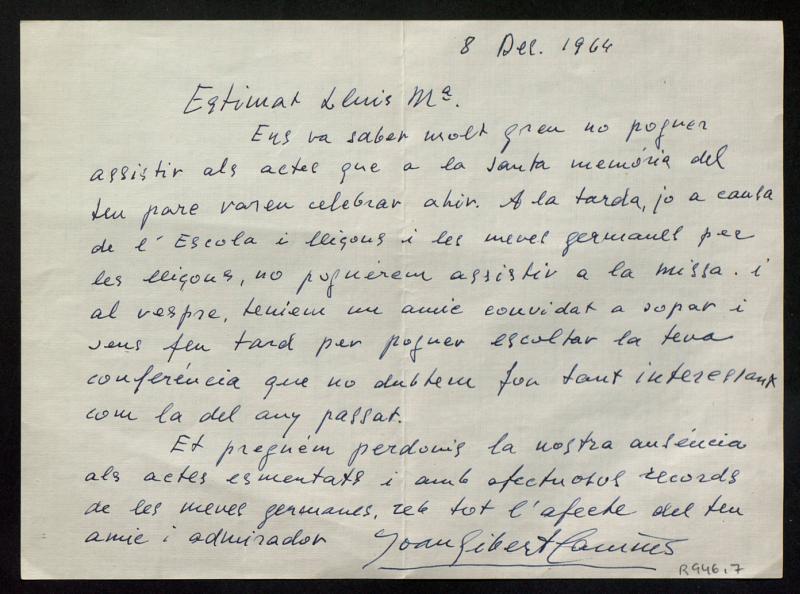 8 Des. 1964
Estimat Lluis Mª.
Ens va saber molt greu no poguer
assistir als actes que a la santa memória del
teu pare varen celebrar ahir. A la tarda, jo a causa
de l'Escola i lliçons i les meves germanes per
les lliçons, no poguérem assistir a la missa. i
al vespre, teniem un amic convidat a sopar i
sens feu tard per poguer escoltar la teva
conferéncia que no dubtem fou tant interessant
com la del any passat.
Et preguém perdonis la nostra auséncia
als actes esmentats i amb afectuosos records
de les meves germanes, reb tot l'afecte del teu
amic i admirador Joan Gibert Camins
R946.7